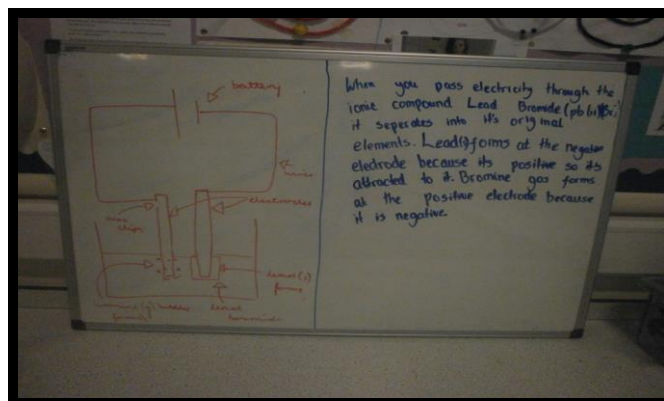 battery
wires
electrodes
wire
clips
lead(s)
lead
bromide
When you pass electricity through the
ionic compound Lead Bromide
it seperates into it's original
elements. Lead forms at the negative
electrode because its positive so its
attracted to it. Bromine gas forms
at the positive electrode because
it is negative.